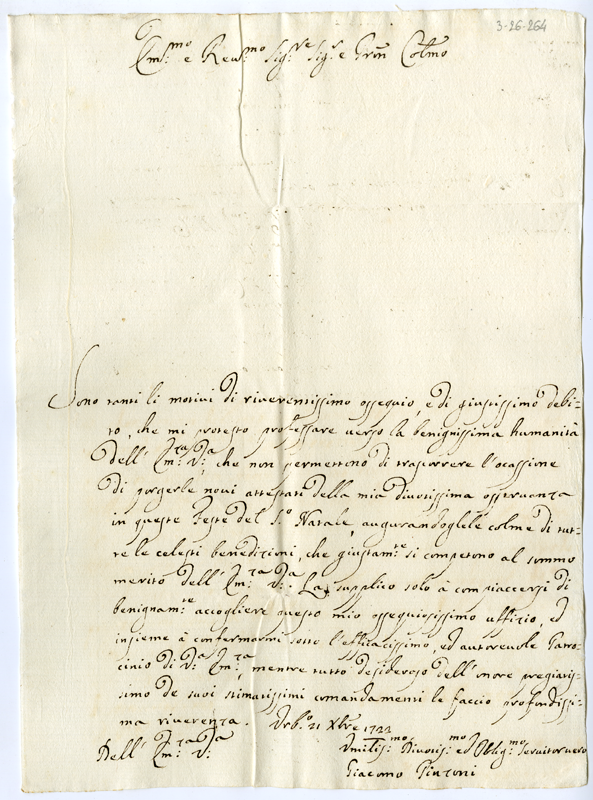 3-26-264
Em.mo e Reu.mo Sig.re Sig.r e Pron Colmo
Sono tanti li motivi di riverentissimo ossequio, e di giustissimo debi=
to, che mi protesto professare verso la benignissima humanità
dell' Em.za V.a che non permettono di trascorrere l'ocassione
di porgerle noui attestati della mia diuotissima osseruanza
in queste Feste del S.o Natale, augurandoglele colme di tut=
te le celesti benedizioni, che giustam.te si competono al sommo
merito dell' Em.za V.a La supplico solo à compiaccersi di
benignam.te accogliere questo mio ossequiosissimo uffizio, ed
insieme à confermarmi sotto l'efficacissimo, ed autoreuole Patro=
cinio di V.a Em.za, mentre tutto desideroso dell'onore pregiatis=
simo de suoi stimatissimi comandamenti le faccio profondissi=
ma riverenza. Urb.o 21 Xbre 1722
Dell' Em.za V.a
Vmilis.mo Diuotis.mo ed Oblig.mo Seruitor uero
Giacomo